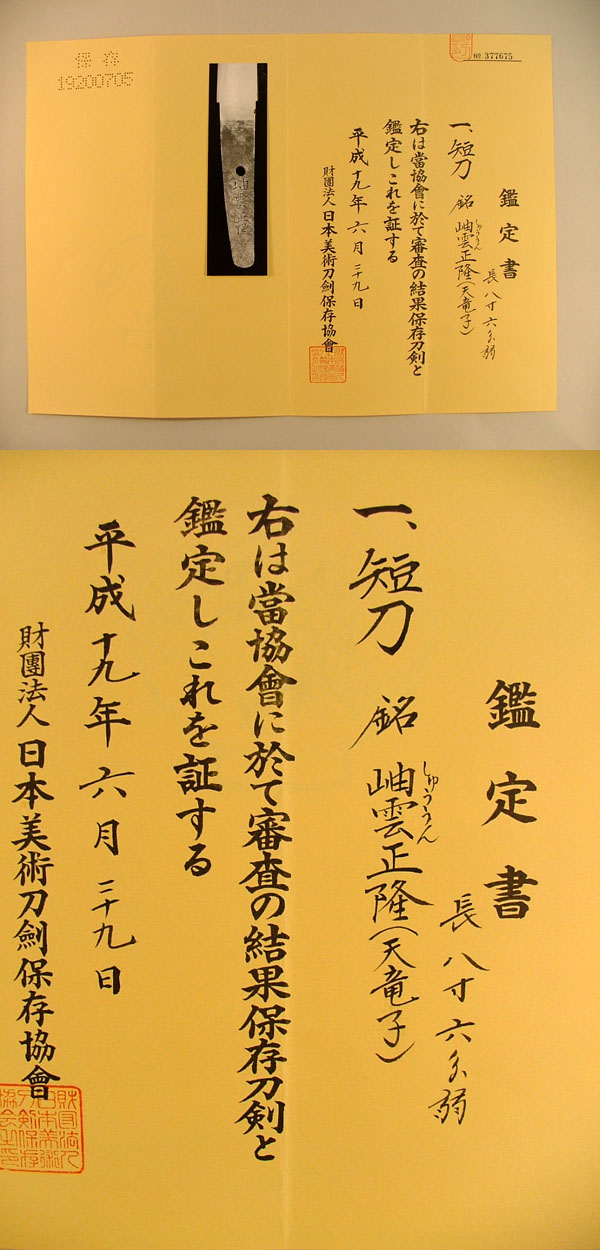 保存
19200705
No 377675
鑑定書
一、短刀 銘 岫雲正隆(天竜子)
しゅううん
長八寸六分弱
右は當協會に於て審査の結果保存刀剣と
鑑定しこれを証する
平成十九年六月二十九日
財團法人日本美術刀劍保存協會
鑑定書
一、短刀 銘 岫雲正隆(天竜子)
しゅううん
長八寸六分弱
右は當協會に於て審査の結果保存刀剣と
鑑定しこれを証する
平成十九年六月二十九日
財團法人日本美術刀劍保存協會